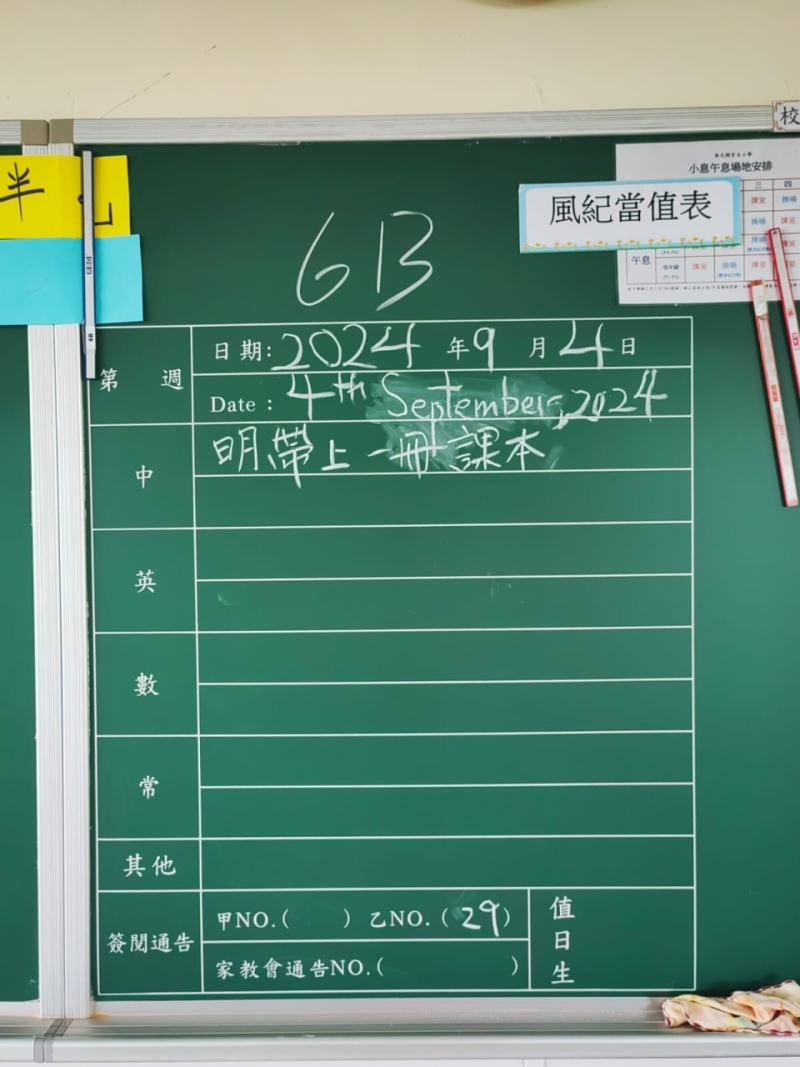 半
校
小息午息場地安排
風紀當值表
三 四
課室 操場
午息
低年級 課室 操場 課室
6B
第 週
日期: 2024 年 9 月 4 日
Date : 4th September, 2024
中
明帶上一冊課本
英
數
常
其他
簽閱通告
甲NO.( ) 乙NO.( 29 )
家教會通告NO.( )
值日生